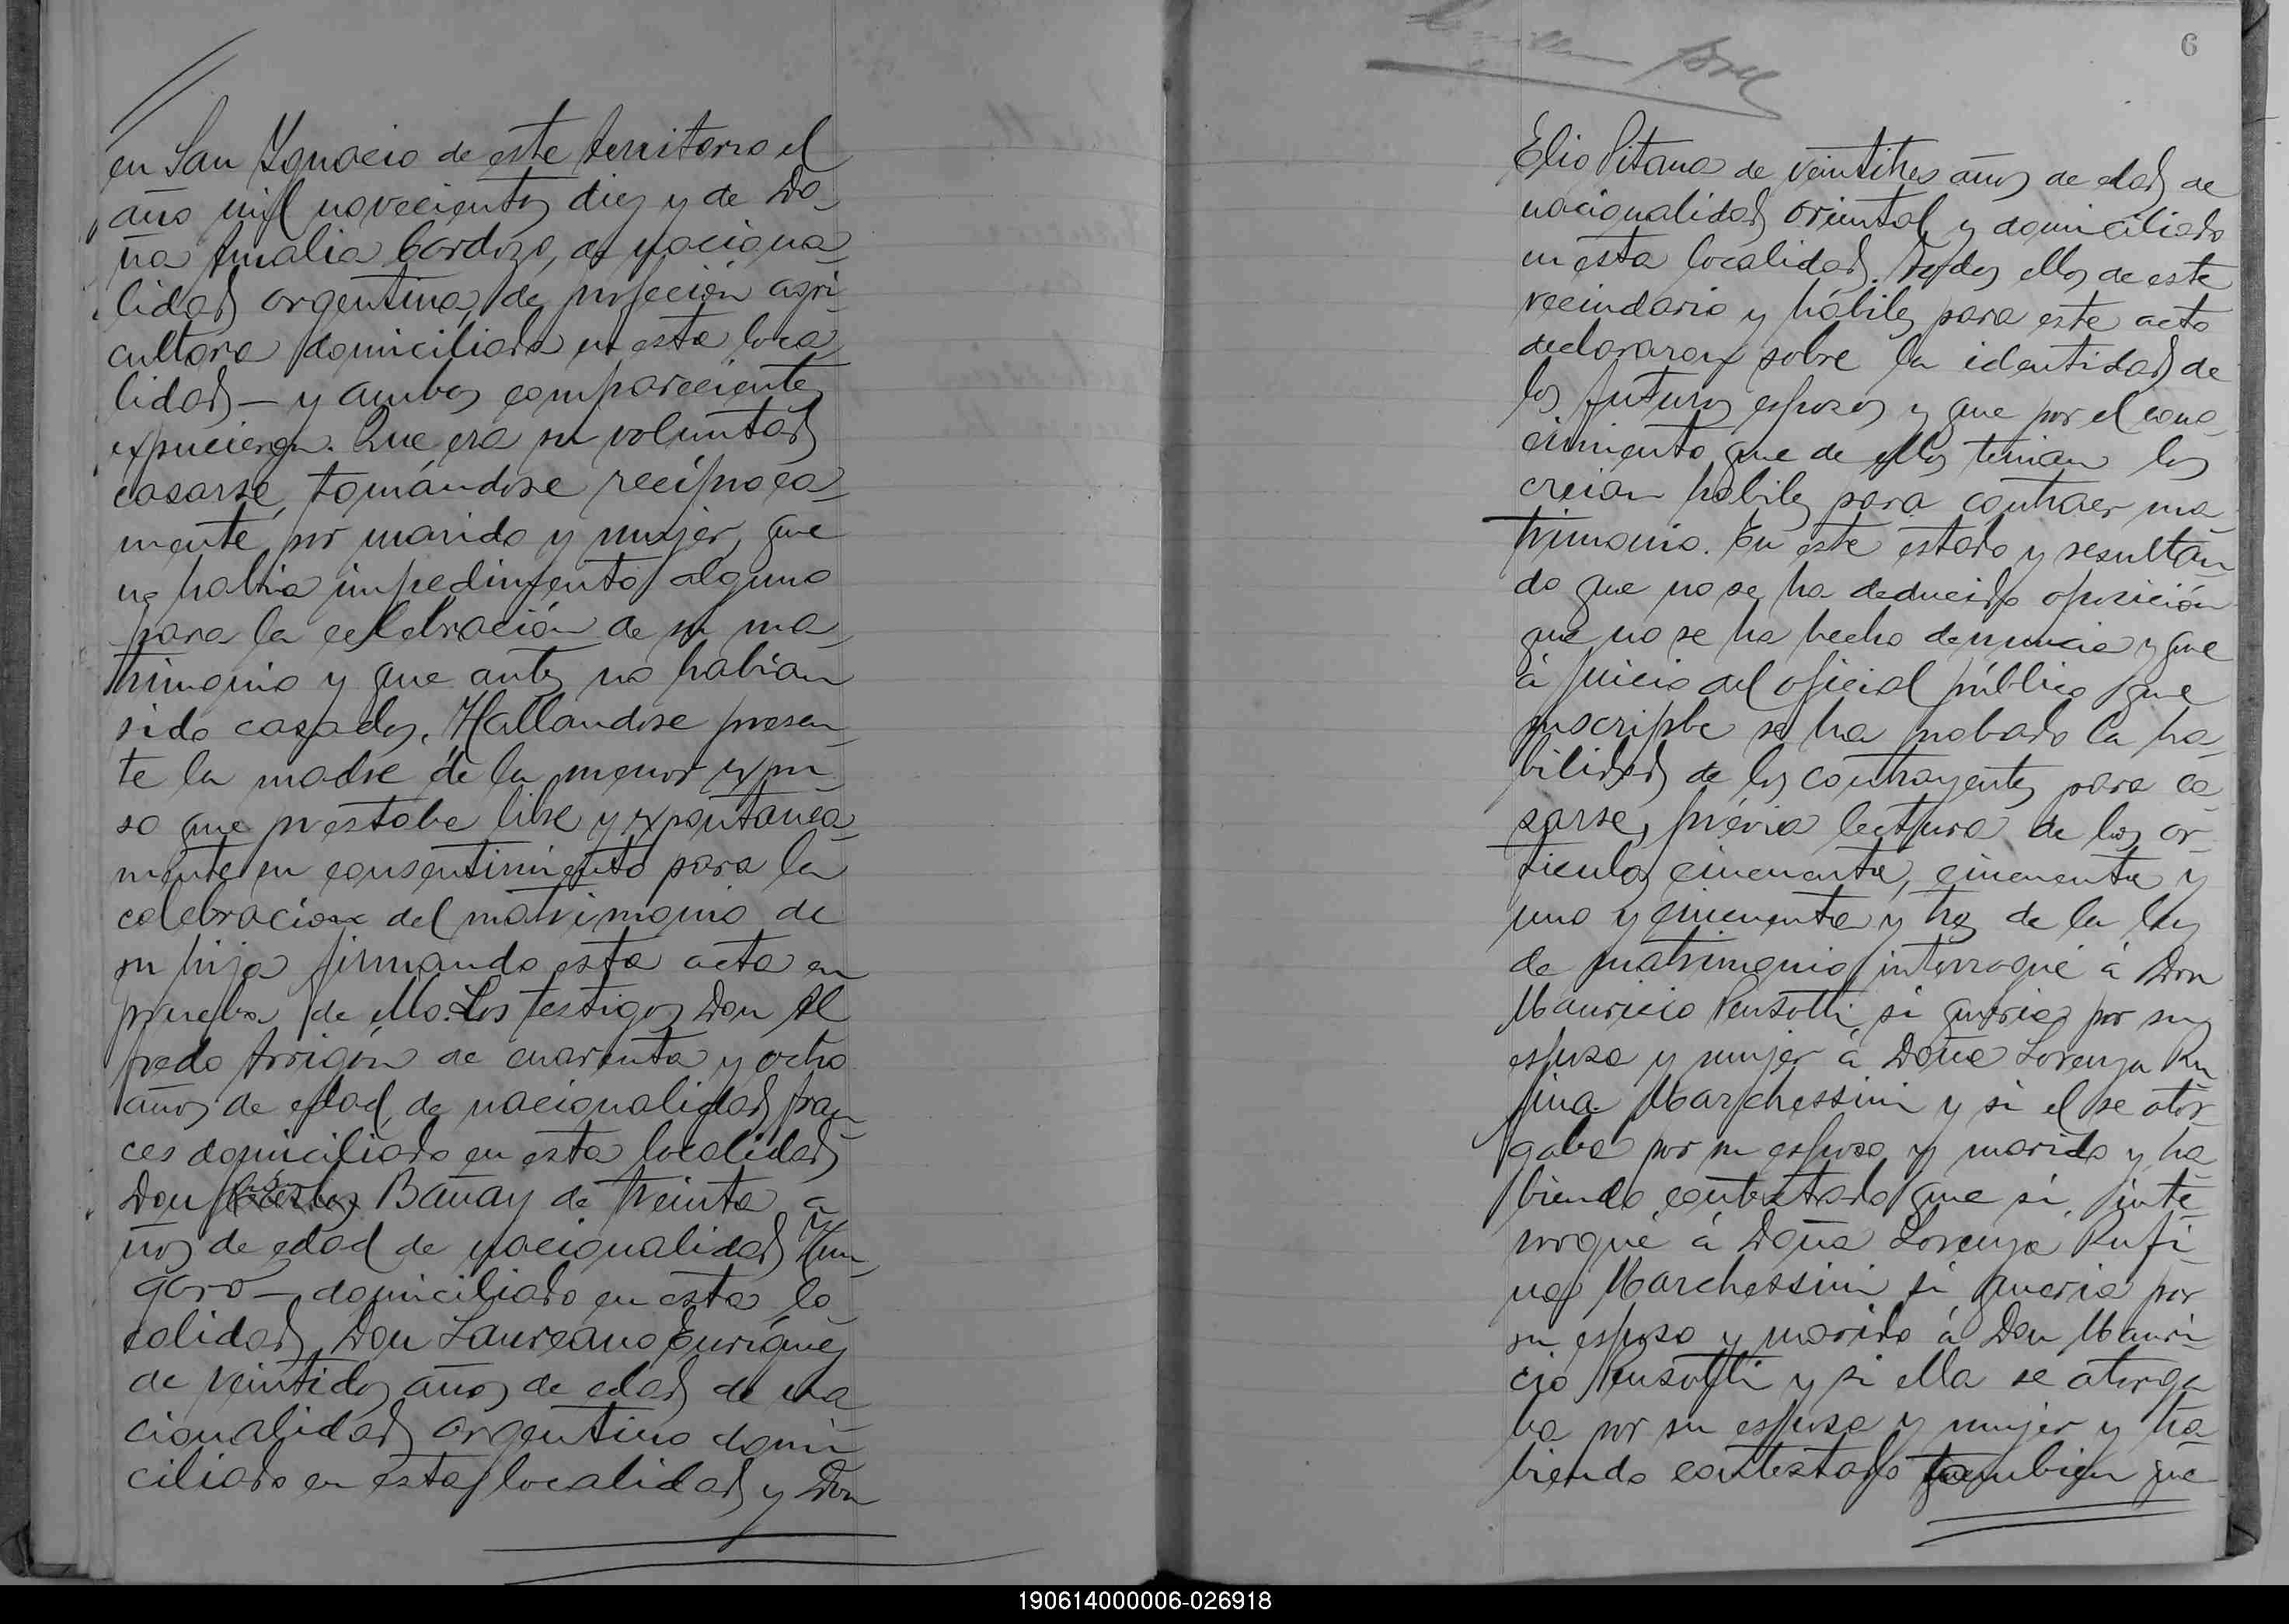 en San Ygnacio de este territorio el
año mil novecientos diez y de Do
ña Amalia Cardozo, de naciona
lidad argentina, de profeción agri
cultora domiciliada en esta loca
lidad – y ambos comparecientes
expucieron. Que era su voluntad
casarse, tomándose recíproca
mente por marido y mujer, que
no habia impedimento alguno
para la celebración de su ma
trimonio y que antes no habian
sido casados. Hallandose presen
te la madre de la menor expu
so que prestaba libre y expontanea
mente su consentimiento para la
celebracion del matrimonio de
su hija firmando esta acta en
prueba de ello. Los testigos Don Al
fredo Arrigón de cuarenta y ocho
años de edad, de nacionalidad fran
ces domiciliado en esta localidad
Don Bañay de treinta a
ños de edad de nacionalidad Hun
garo – domiciliado en esta lo
calidad, Don Laureano Enriquez
de veintidos años de edad de na
cionalidad argentino domi
ciliado en esta localidad y Don
6
Elio Pitana de veintitres años de edad de
nacionalidad oriental y domiciliado
en esta localidad. Todos ellos de este
vecindario y hábiles para este acto
declararon sobre la identidad de
los futuros esposos y que por el cono
cimiento que de ellos tenian los
creian habiles para contraer ma
trimonio. En este estado y resultan
do que no se ha deducido oposición
que no se ha hecho denuncia y que
á juicio del oficial público que
suscripbe se ha probado la ha
bilidad de los contrayentes para ca
sarse, prévia lectura de los ar
ticulos cincuenta, cincuenta y
uno y cincuenta y tres de la ley
de matrimonio interrogué á Don
Mauricio Pensotti si queria por su
esposa y mujer á Doña Lorenza Ru
fina Marchessini y si el se otor
gaba por su esposo y marido y ha
biendo contestado que si, inte
rrogué á Doña Lorenza Rufi
na Marchessini si queria por
su esposo y marido á Don Mauri
cio Pensotti y si ella se otorga
ba por su esposa y mujer y ha
biendo contestado tambien que
190614000006-026918